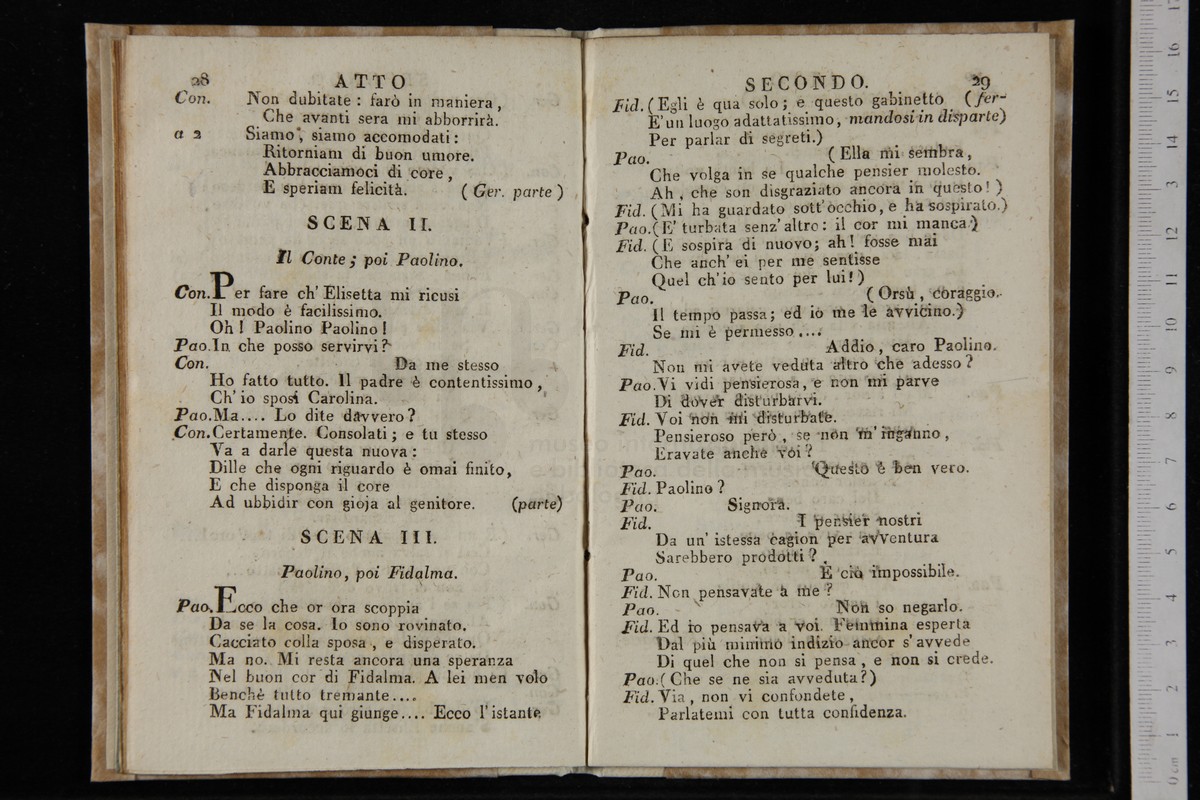 28 ATTO
Con. Non dubitate : farò in maniera,
Che avanti sera mi abborrirà.
a 2 Siamo, siamo accomodati:
Ritorniam di buon umore.
Abbracciamoci di core,
E speriam felicità. ( Ger. parte )
SCENA II.
Il Conte ; poi Paolino.
Con. Per fare ch' Elisetta mi ricusi
Il modo è facilissimo.
Oh ! Paolino Paolino !
Pao. In che posso servirvi ?
Con. Da me stesso
Ho fatto tutto. Il padre è contentissimo,
Ch' io sposi Carolina.
Pao. Ma.... Lo dite davvero ?
Con. Certamente. Consolati ; e tu stesso
Va a darle questa nuova :
Dille che ogni riguardo è omai finito,
E che disponga il core
Ad ubbidir con gioja al genitore. (parte)
SCENA III.
Paolino, poi Fidalma.
Pao. Ecco che or ora scoppia
Da se la cosa. Io sono rovinato.
Cacciato colla sposa , e disperato.
Ma no. Mi resta ancora una speranza
Nel buon cor di Fidalma. A lei men volo
Benchè tutto tremante....
Ma Fidalma qui giunge.... Ecco l'istante
SECONDO. 29
Fid. ( Egli è qua solo ; e questo gabinetto (fer-
E' un luogo adattatissimo, mandosi in disparte)
Per parlar di segreti.)
Pao. ( Ella mi sembra,
Che volga in se qualche pensier molesto.
Ah , che son disgraziato ancora in questo ! )
Fid. ( Mi ha guardato sott'occhio, e ha sospirato.)
Pao. (E' turbata senz' altro : il cor mi manca.)
Fid. ( E sospira di nuovo; ah ! fosse mai
Che anch' ei per me sentisse
Quel ch'io sento per lui !)
Pao. ( Orsù , coraggio.
Il tempo passa; ed io me le avvicino.)
Se mi è permesso ....
Fid. Addio , caro Paolino.
Non mi avete veduta altro che adesso ?
Pao. Vi vidi pensierosa, e non mi parve
Di dover disturbarvi.
Fid. Voi non mi disturbate.
Pensieroso però , se non m' inganno ,
Eravate anche voi ?
Pao. Questo è ben vero.
Fid. Paolino ?
Pao. Signora.
Fid. I pensier nostri
Da un' istessa cagion per avventura
Sarebbero prodotti ?
Pao. E ciò impossibile.
Fid. Non pensavate a me ?
Pao. Non so negarlo.
Fid. Ed io pensava a voi. Femmina esperta
Dal più minimo indizio ancor s' avvede
Di quel che non si pensa , e non si crede.
Pao. ( Che se ne sia avveduta ?)
Fid. Via , non vi confondete ,
Parlatemi con tutta confidenza.